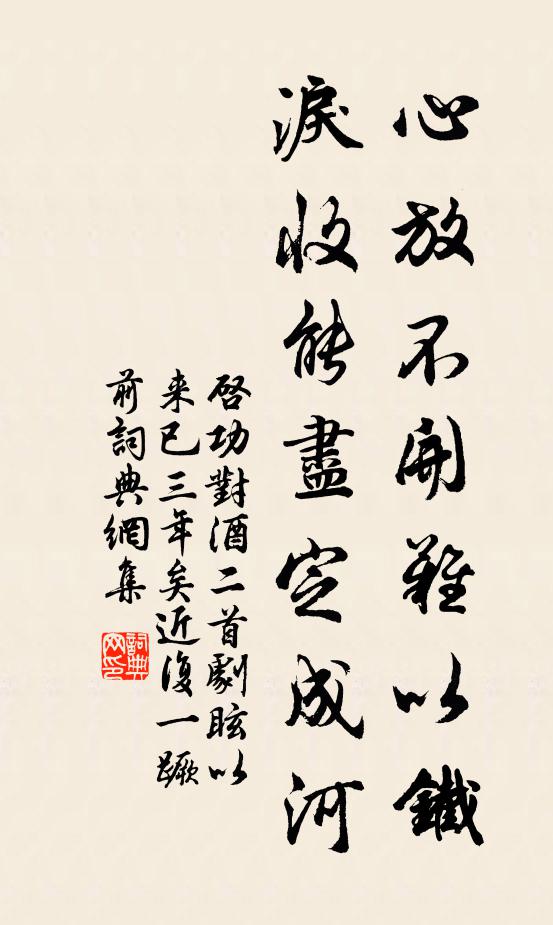 心放不開難以鐵
淚收能盡定成河
啓功對酒二首劇眩以
来已三年矣近復一蹶
前詞典網集
詞典網印